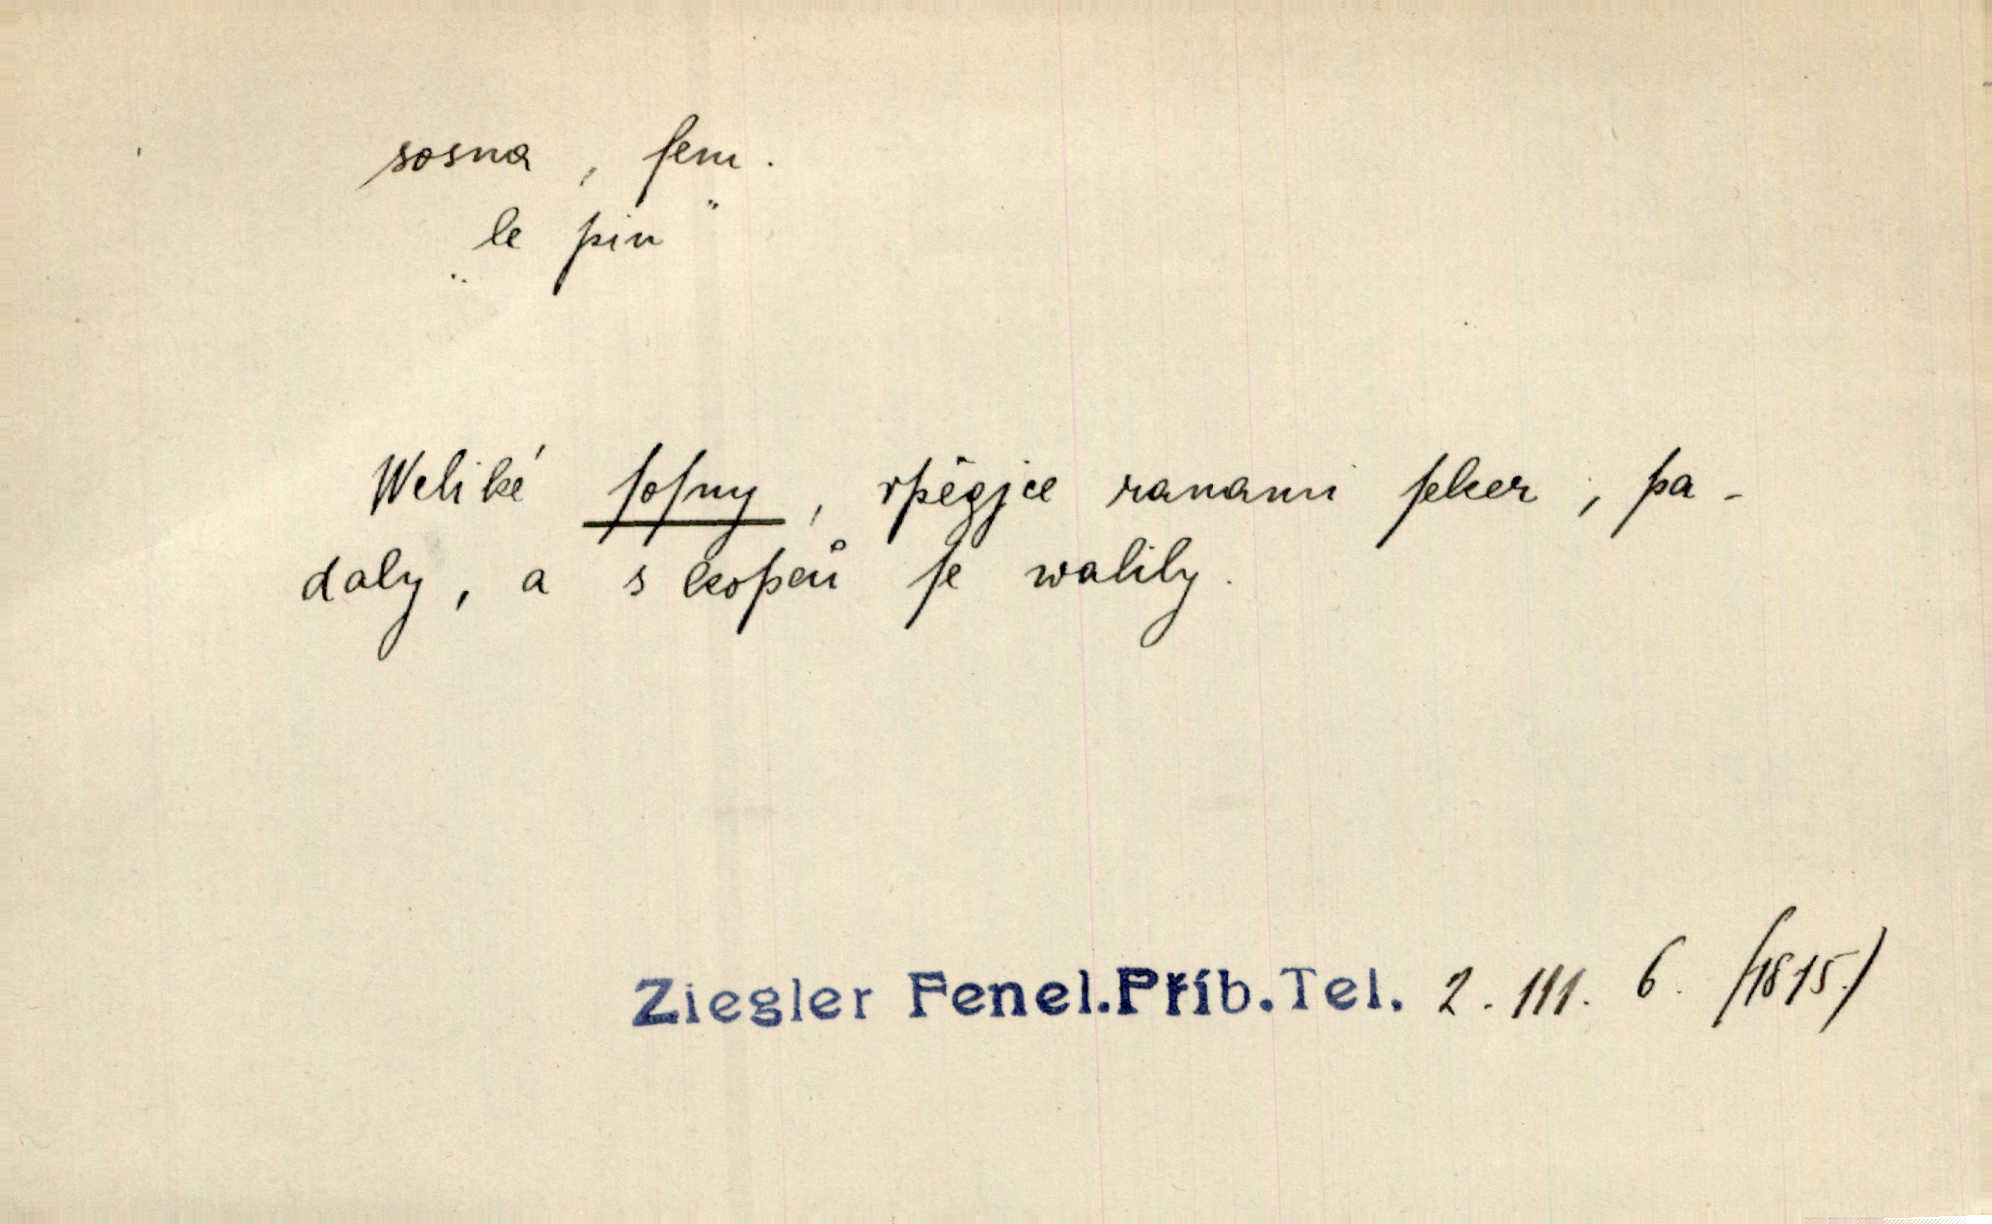 sosna, fem.
„le pin“
Weliké ſoſny, rpěgjce ranami ſeker, pa-
daly, a s kopců ſe walily.
Ziegler Fenel.Příb.Tel. 2. III. 6. /1815./